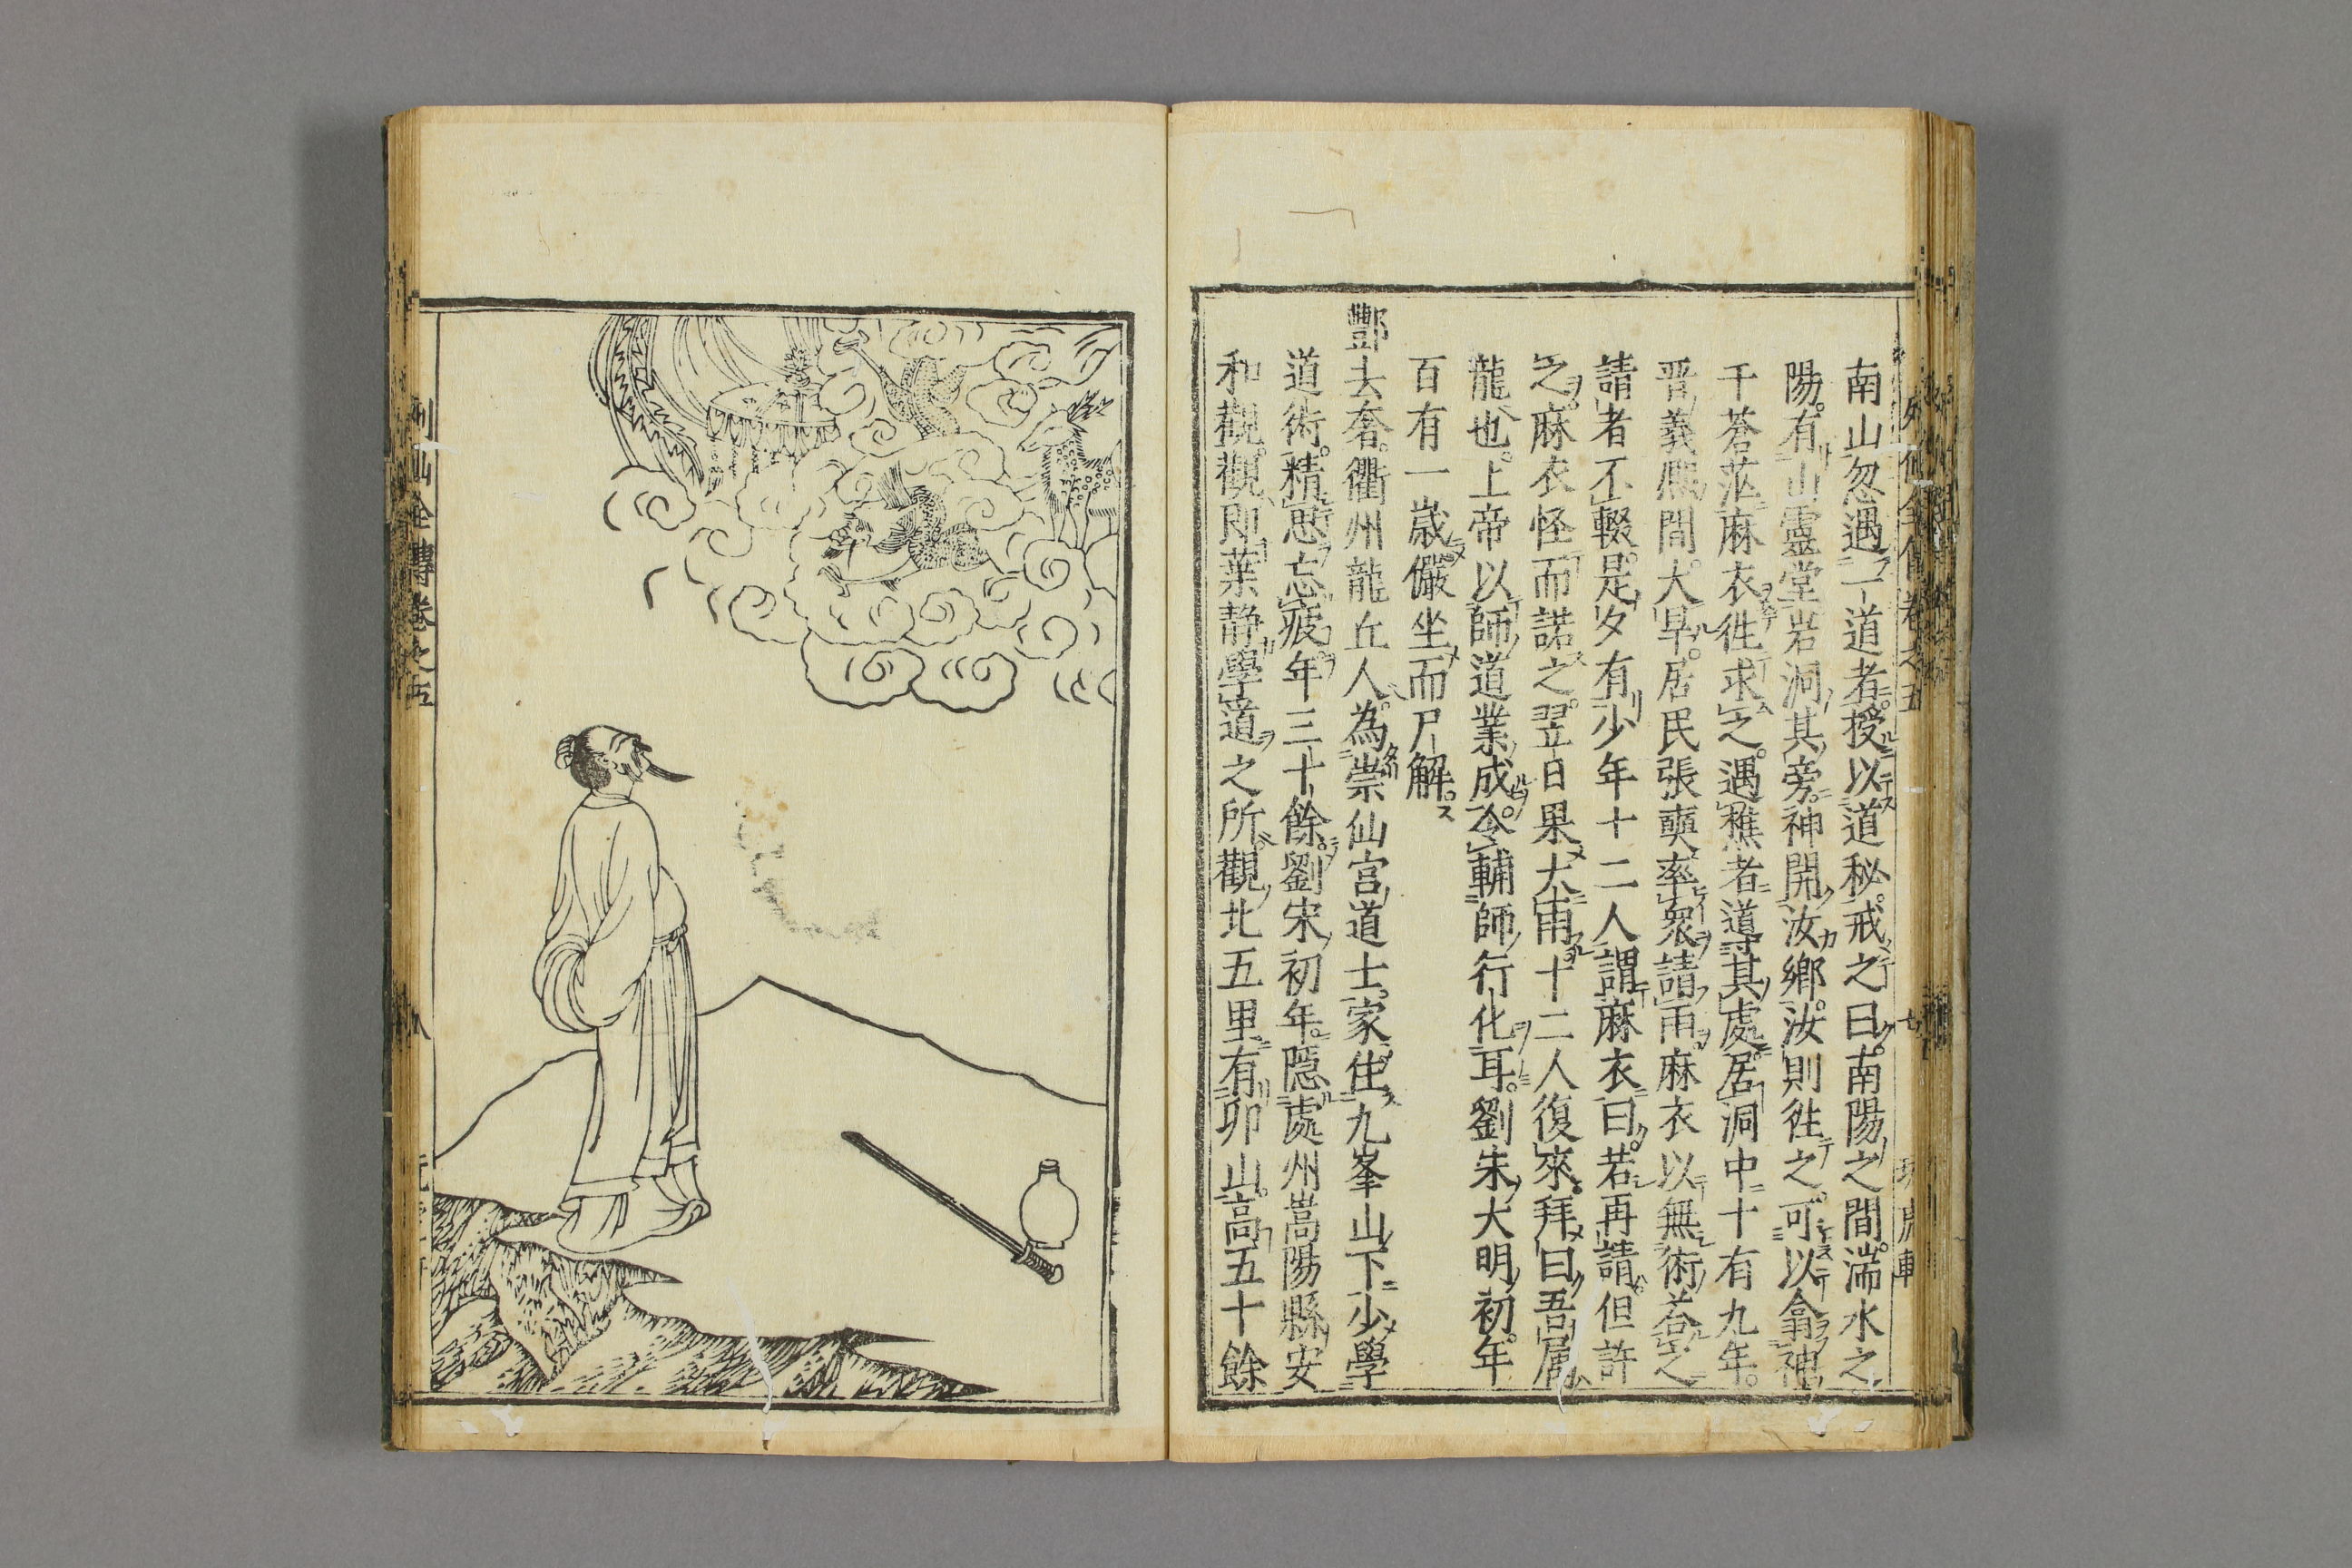 南山忽遇一道者授以道秘戒之曰南陽之間湍水之
陽有山靈堂岩洞其旁神開汝鄉汝則徃之可以龕神
千荅茫麻衣徃求之遇樵者導其處居洞中十有九年
晋義熈間大旱居民張奭率衆請雨麻衣以無術荅之
請者不輟是夕有少年十二人謂麻衣曰若再請但許
之麻衣怪而諾之翌日果大雨十二人復來拜曰吾属
龍也上帝以師道業成令輔師行化耳劉朱大明初年
百有一歲儼坐而尸解
酆去奢衢州龍丘人為崇仙宫道士家住九峯山下少學
道術精思忘疲年三十餘劉宋初年隱處州嵩陽縣安
和觀觀即葉静學道之所觀北五里有卯山高五十餘
列仙全傳卷之五
八